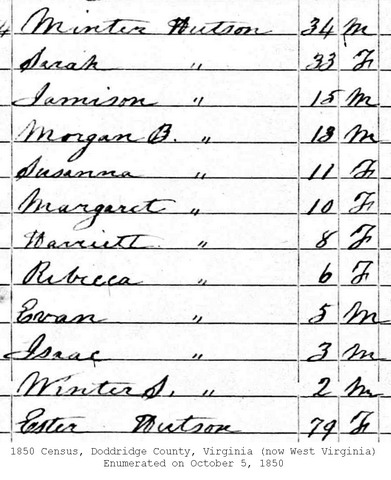 4 Minter Hutson 34 M
Sarah " 33 F
Jamison " 15 M
Morgan B. " 13 M
Susanna " 11 F
Margaret " 10 F
Harriett " 8 F
Rebecca " 6 F
Evan " 5 M
Isaac " 3 M
Winter S. " 2 M
Ester Hutson 79 F
1850 Census, Doddridge County, Virginia (now West Virginia)
Enumerated on October 5, 1850